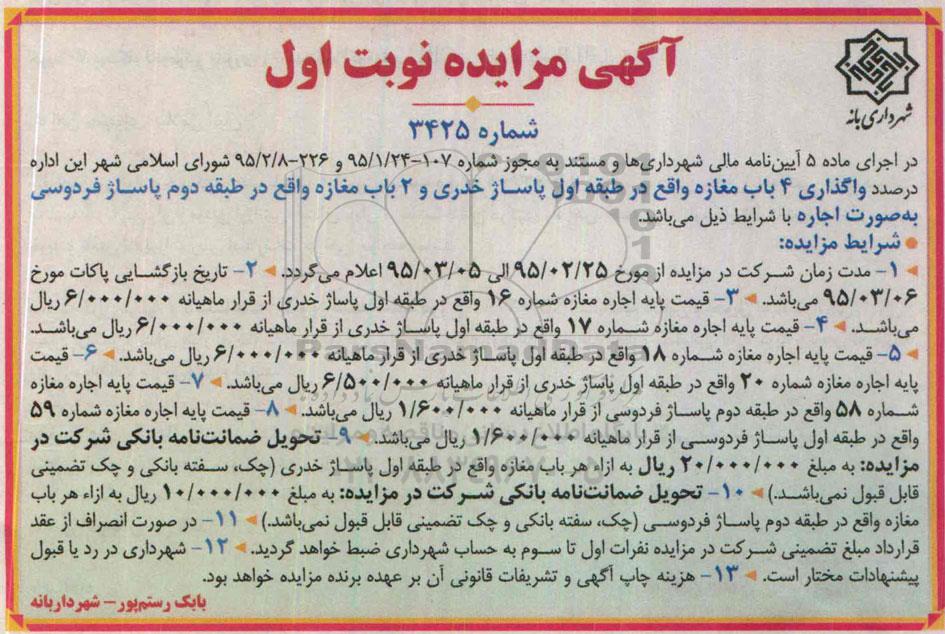 آگهی مزایده نوبت اول
شهرداری بانه
شماره ۳۴۲۵
در اجرای ماده ۵ آیین‌نامه مالی شهرداری‌ها و مستند به مجوز شماره ۱۰۷-۹۵/۱/۲۴ و ۲۲۶-۹۵/۲/۸ شورای اسلامی شهر این اداره
درصدد واگذاری ۴ باب مغازه واقع در طبقه اول پاساژ خدری و ۲ باب مغازه واقع در طبقه دوم پاساژ فردوسی
به‌صورت اجاره با شرایط ذیل می‌باشد.
● شرایط مزایده:
۱- مدت زمان شرکت در مزایده از مورخ ۹۵/۰۲/۲۵ الی ۹۵/۰۳/۰۵ اعلام می‌گردد. ۲- تاریخ بازگشایی پاکات مورخ
۹۵/۰۳/۰۶ می‌باشد. ۳- قیمت پایه اجاره مغازه شماره ۱۶ واقع در طبقه اول پاساژ خدری از قرار ماهیانه ۶/۰۰۰/۰۰۰ ریال
می‌باشد. ۴- قیمت پایه اجاره مغازه شماره ۱۷ واقع در طبقه اول پاساژ خدری از قرار ماهیانه ۶/۰۰۰/۰۰۰ ریال می‌باشد.
۵- قیمت پایه اجاره مغازه شماره ۱۸ واقع در طبقه اول پاساژ خدری از قرار ماهیانه ۶/۰۰۰/۰۰۰ ریال می‌باشد. ۶- قیمت
پایه اجاره مغازه شماره ۲۰ واقع در طبقه اول پاساژ خدری از قرار ماهیانه ۶/۵۰۰/۰۰۰ ریال می‌باشد. ۷- قیمت پایه اجاره مغازه
شماره ۵۸ واقع در طبقه دوم پاساژ فردوسی از قرار ماهیانه ۱/۶۰۰/۰۰۰ ریال می‌باشد. ۸- قیمت پایه اجاره مغازه شماره ۵۹
واقع در طبقه اول پاساژ فردوسی از قرار ماهیانه ۱/۶۰۰/۰۰۰ ریال می‌باشد. ۹- تحویل ضمانت‌نامه بانکی شرکت در
مزایده: به مبلغ ۲۰/۰۰۰/۰۰۰ ریال به ازاء هر باب مغازه واقع در طبقه اول پاساژ خدری (چک، سفته بانکی و چک تضمینی
قابل قبول نمی‌باشد.) ۱۰- تحویل ضمانت‌نامه بانکی شرکت در مزایده: به مبلغ ۱۰/۰۰۰/۰۰۰ ریال به ازاء هر باب
مغازه واقع در طبقه دوم پاساژ فردوسی (چک، سفته بانکی و چک تضمینی قابل قبول نمی‌باشد.) ۱۱- در صورت انصراف از عقد
قرارداد مبلغ تضمینی شرکت در مزایده نفرات اول تا سوم به حساب شهرداری ضبط خواهد گردید. ۱۲- شهرداری در رد یا قبول
پیشنهادات مختار است. ۱۳- هزینه چاپ آگهی و تشریفات قانونی آن بر عهده برنده مزایده خواهد بود.
بابک رستم‌پور- شهردار بانه
ParsNamadData